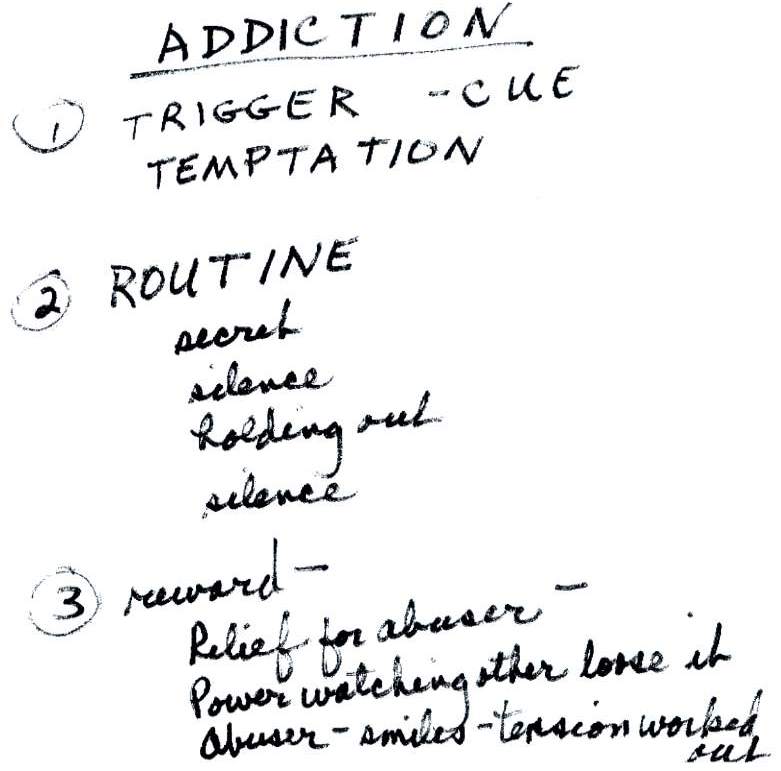 ADDICTION
1 TRIGGER - CUE
TEMPTATION
2 ROUTINE
secret
silence
holding out
silence
3 reward -
Relief for abuser -
Power watching other loose it
Abuser - smiles - tension worked
out